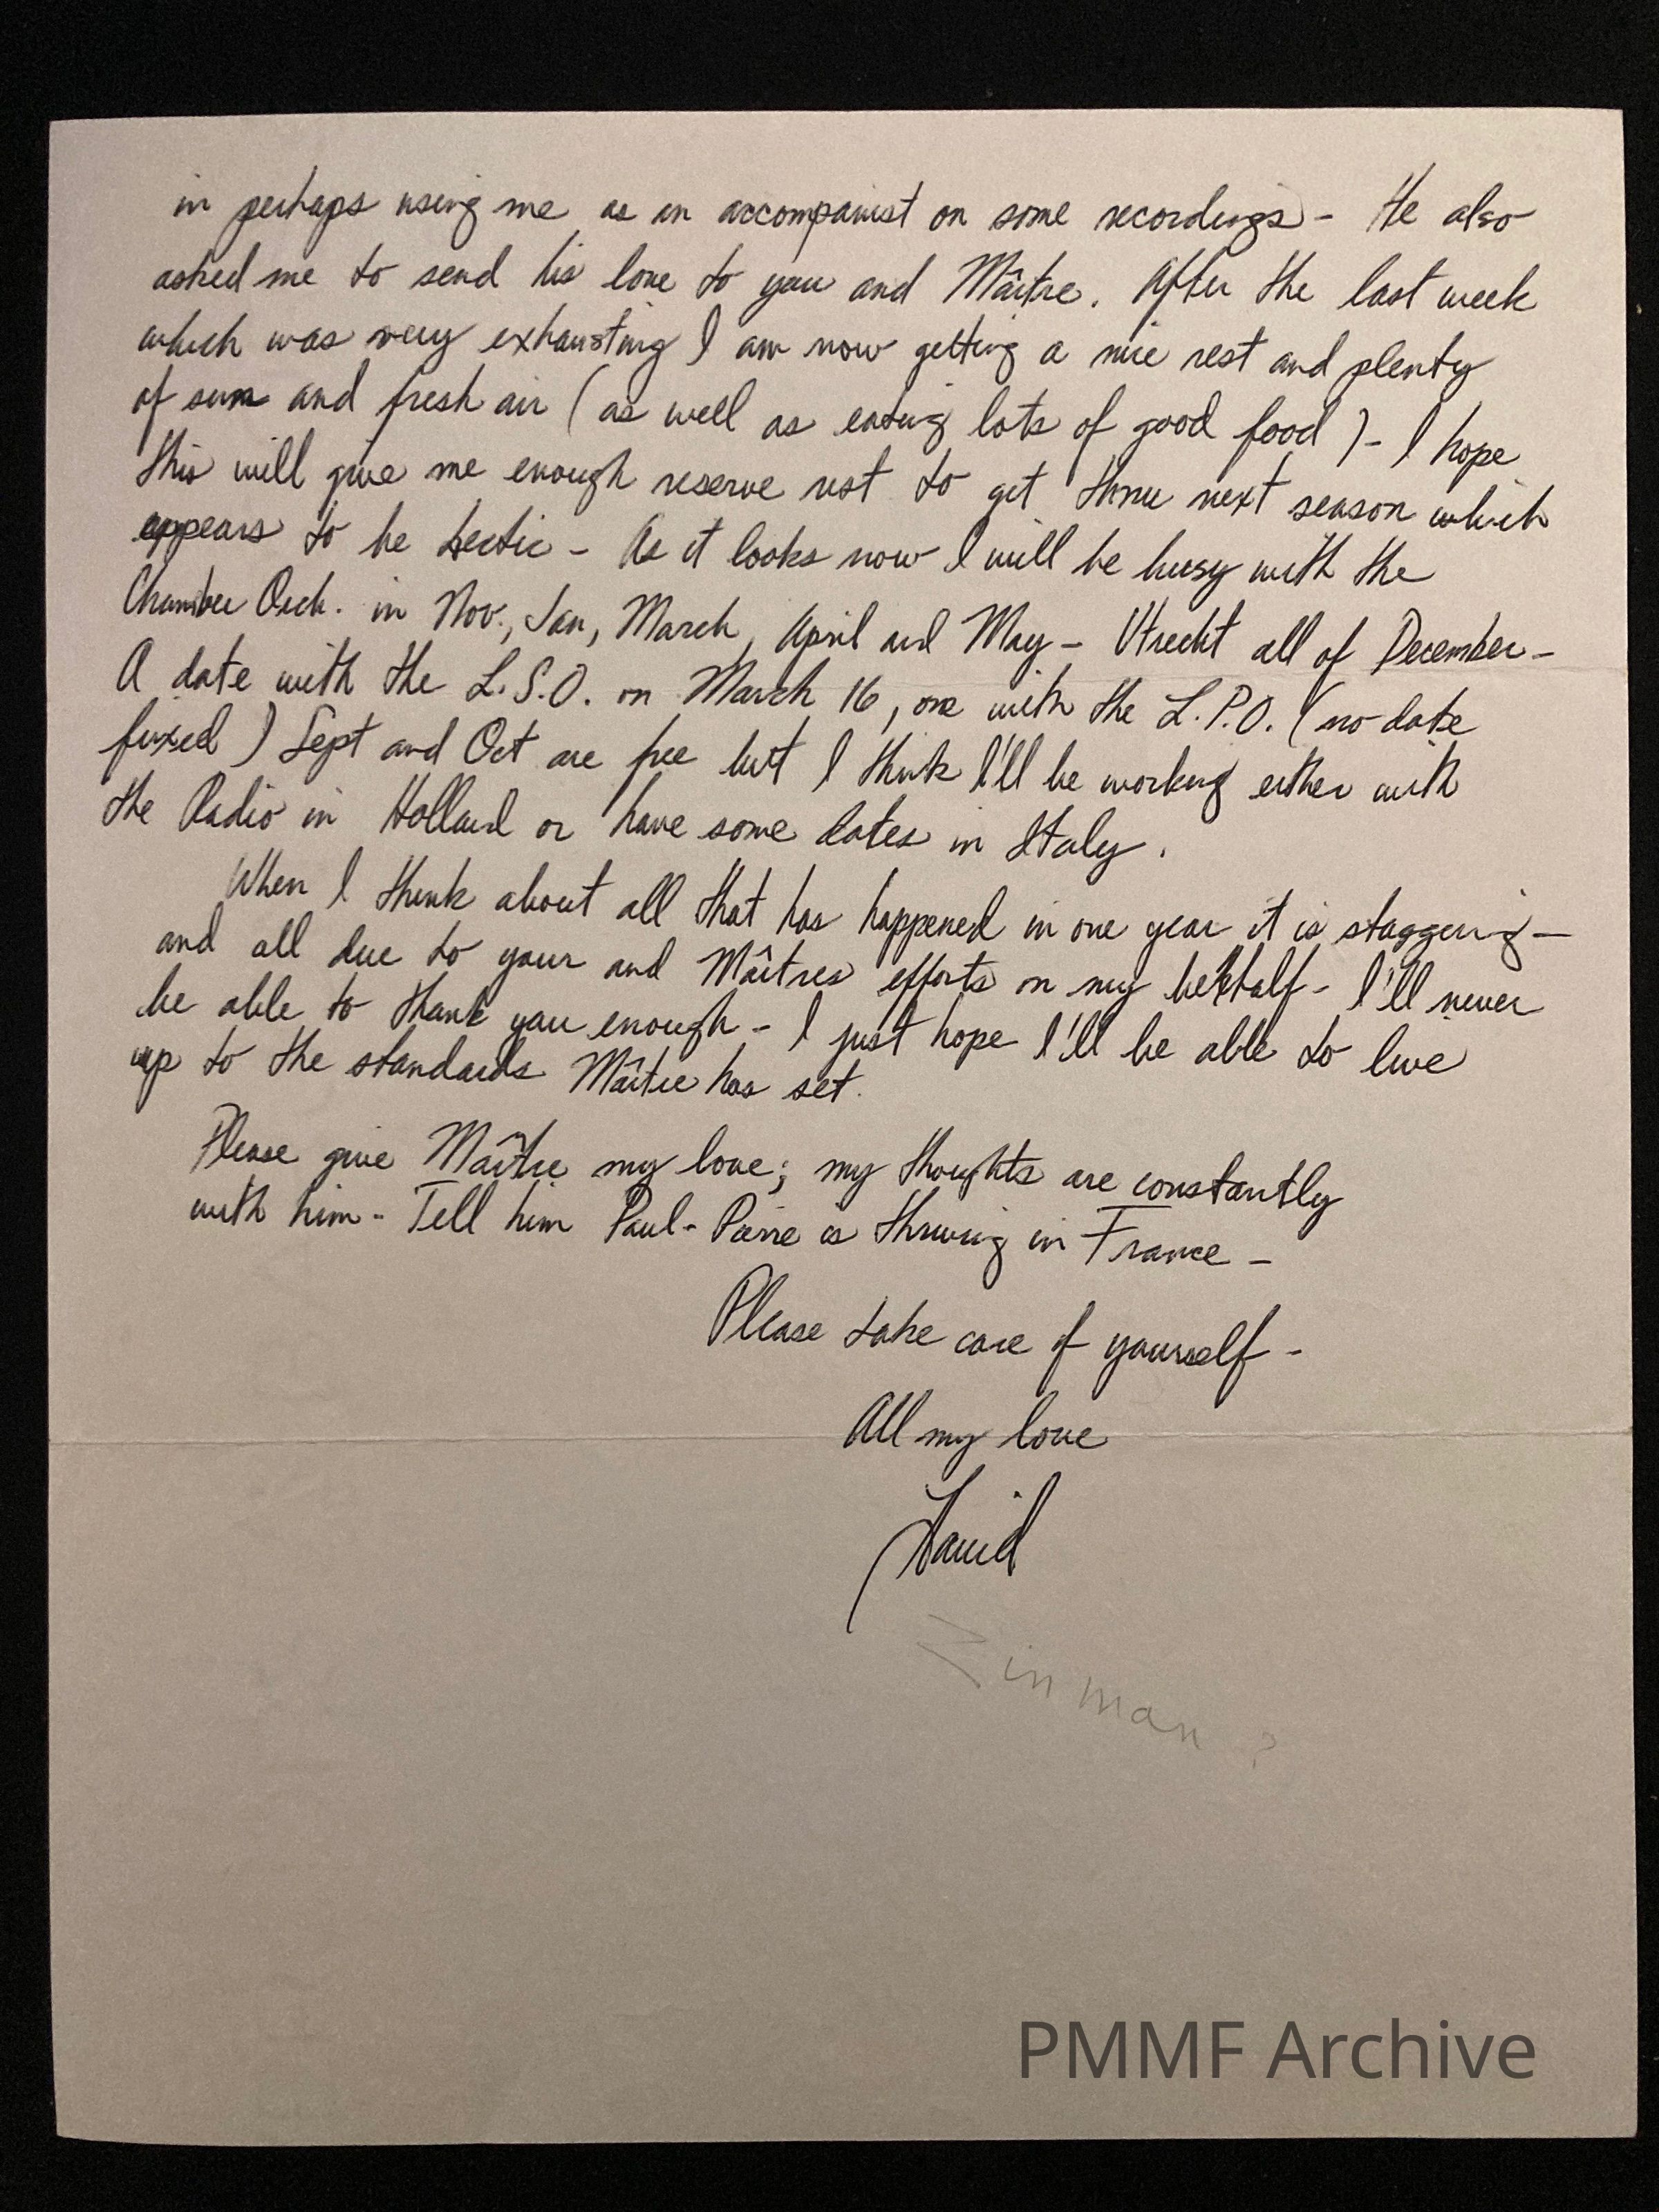 in perhaps using me as an accompanist on some recordings - He also
asked me to send his love to you and Maître. After the last week
which was very exhausting I am now getting a nice rest and plenty
of sun and fresh air (as well as eating lots of good food) - I hope
this will give me enough reserve rest to get thru next season which
appears to be hectic - As it looks now I will be busy with the
Chamber Orch. in Nov., Jan, March, April and May - Utrecht all of December -
A date with the L.S.O. on March 16, one with the L.P.O. (no date
fixed) Sept and Oct are free but I think I'll be working either with
the Radio in Holland or have some dates in Italy.
When I think about all that has happened in one year it is staggering -
and all due to your and Maîtres efforts on my behalf - I'll never
be able to thank you enough - I just hope I'll be able to live
up to the standards Maître has set.
Please give Maître my love; my thoughts are constantly
with him - Tell him Paul-Pierre is thriving in France -
Please take care of yourself -
All my love
David
Zinman ?
PMMF Archive